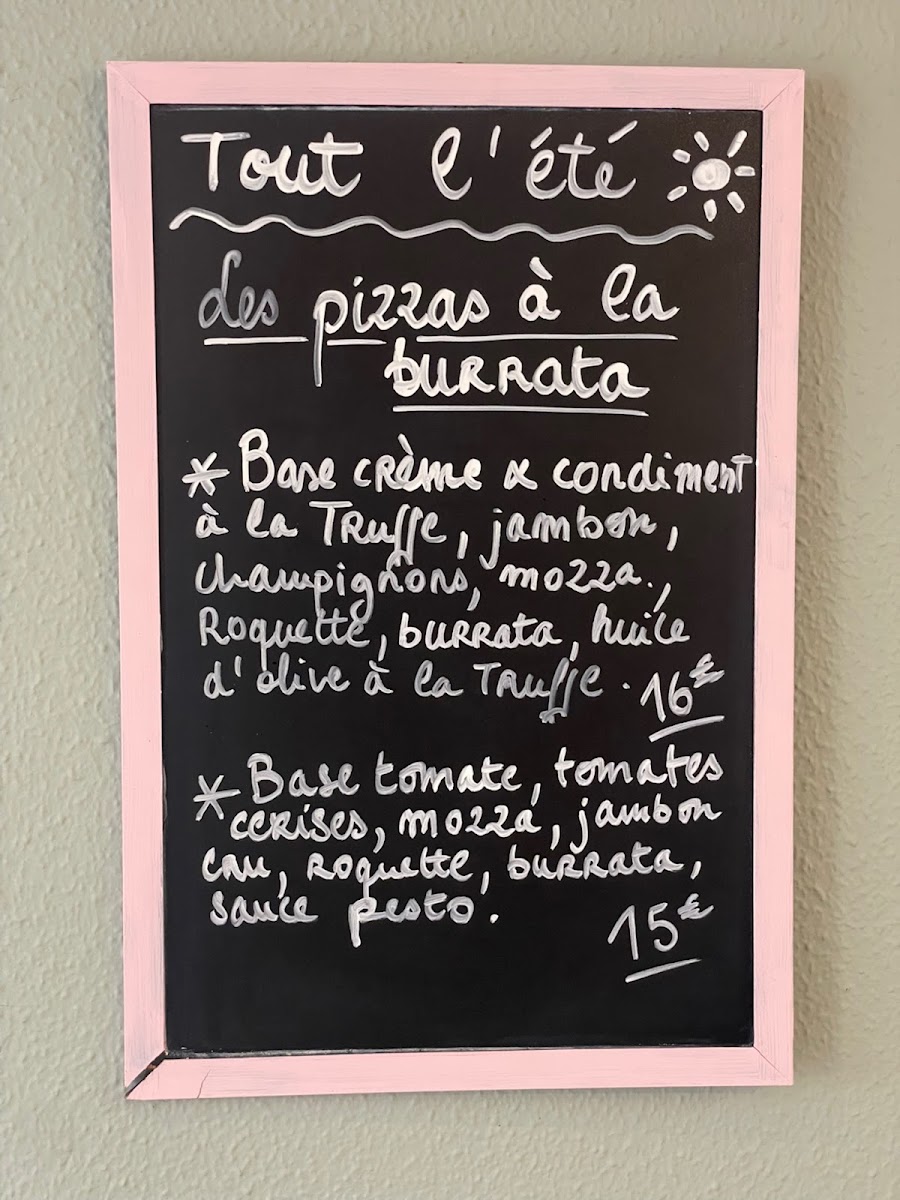 Tout l'été
Les pizzas à la
burrata
* Base crème & condiment
à la Truffe, jambon,
champignons, mozza.,
Roquette, burrata, huile
d'olive à la Truffe. 16€
* Base tomate, tomates
cerises, mozza, jambon
cru, roquette, burrata,
sauce pesto. 15€